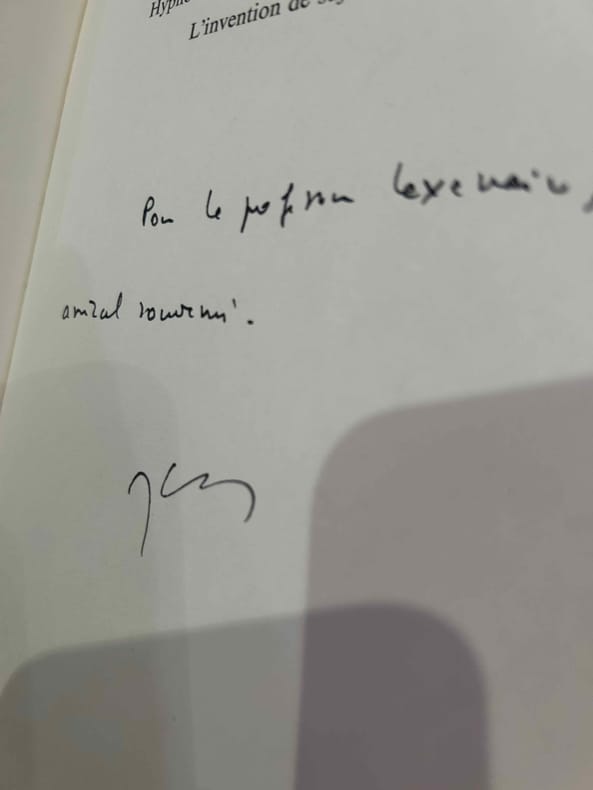 L'invention de
Pour le professeur Lexenaire,
amical souvenir.